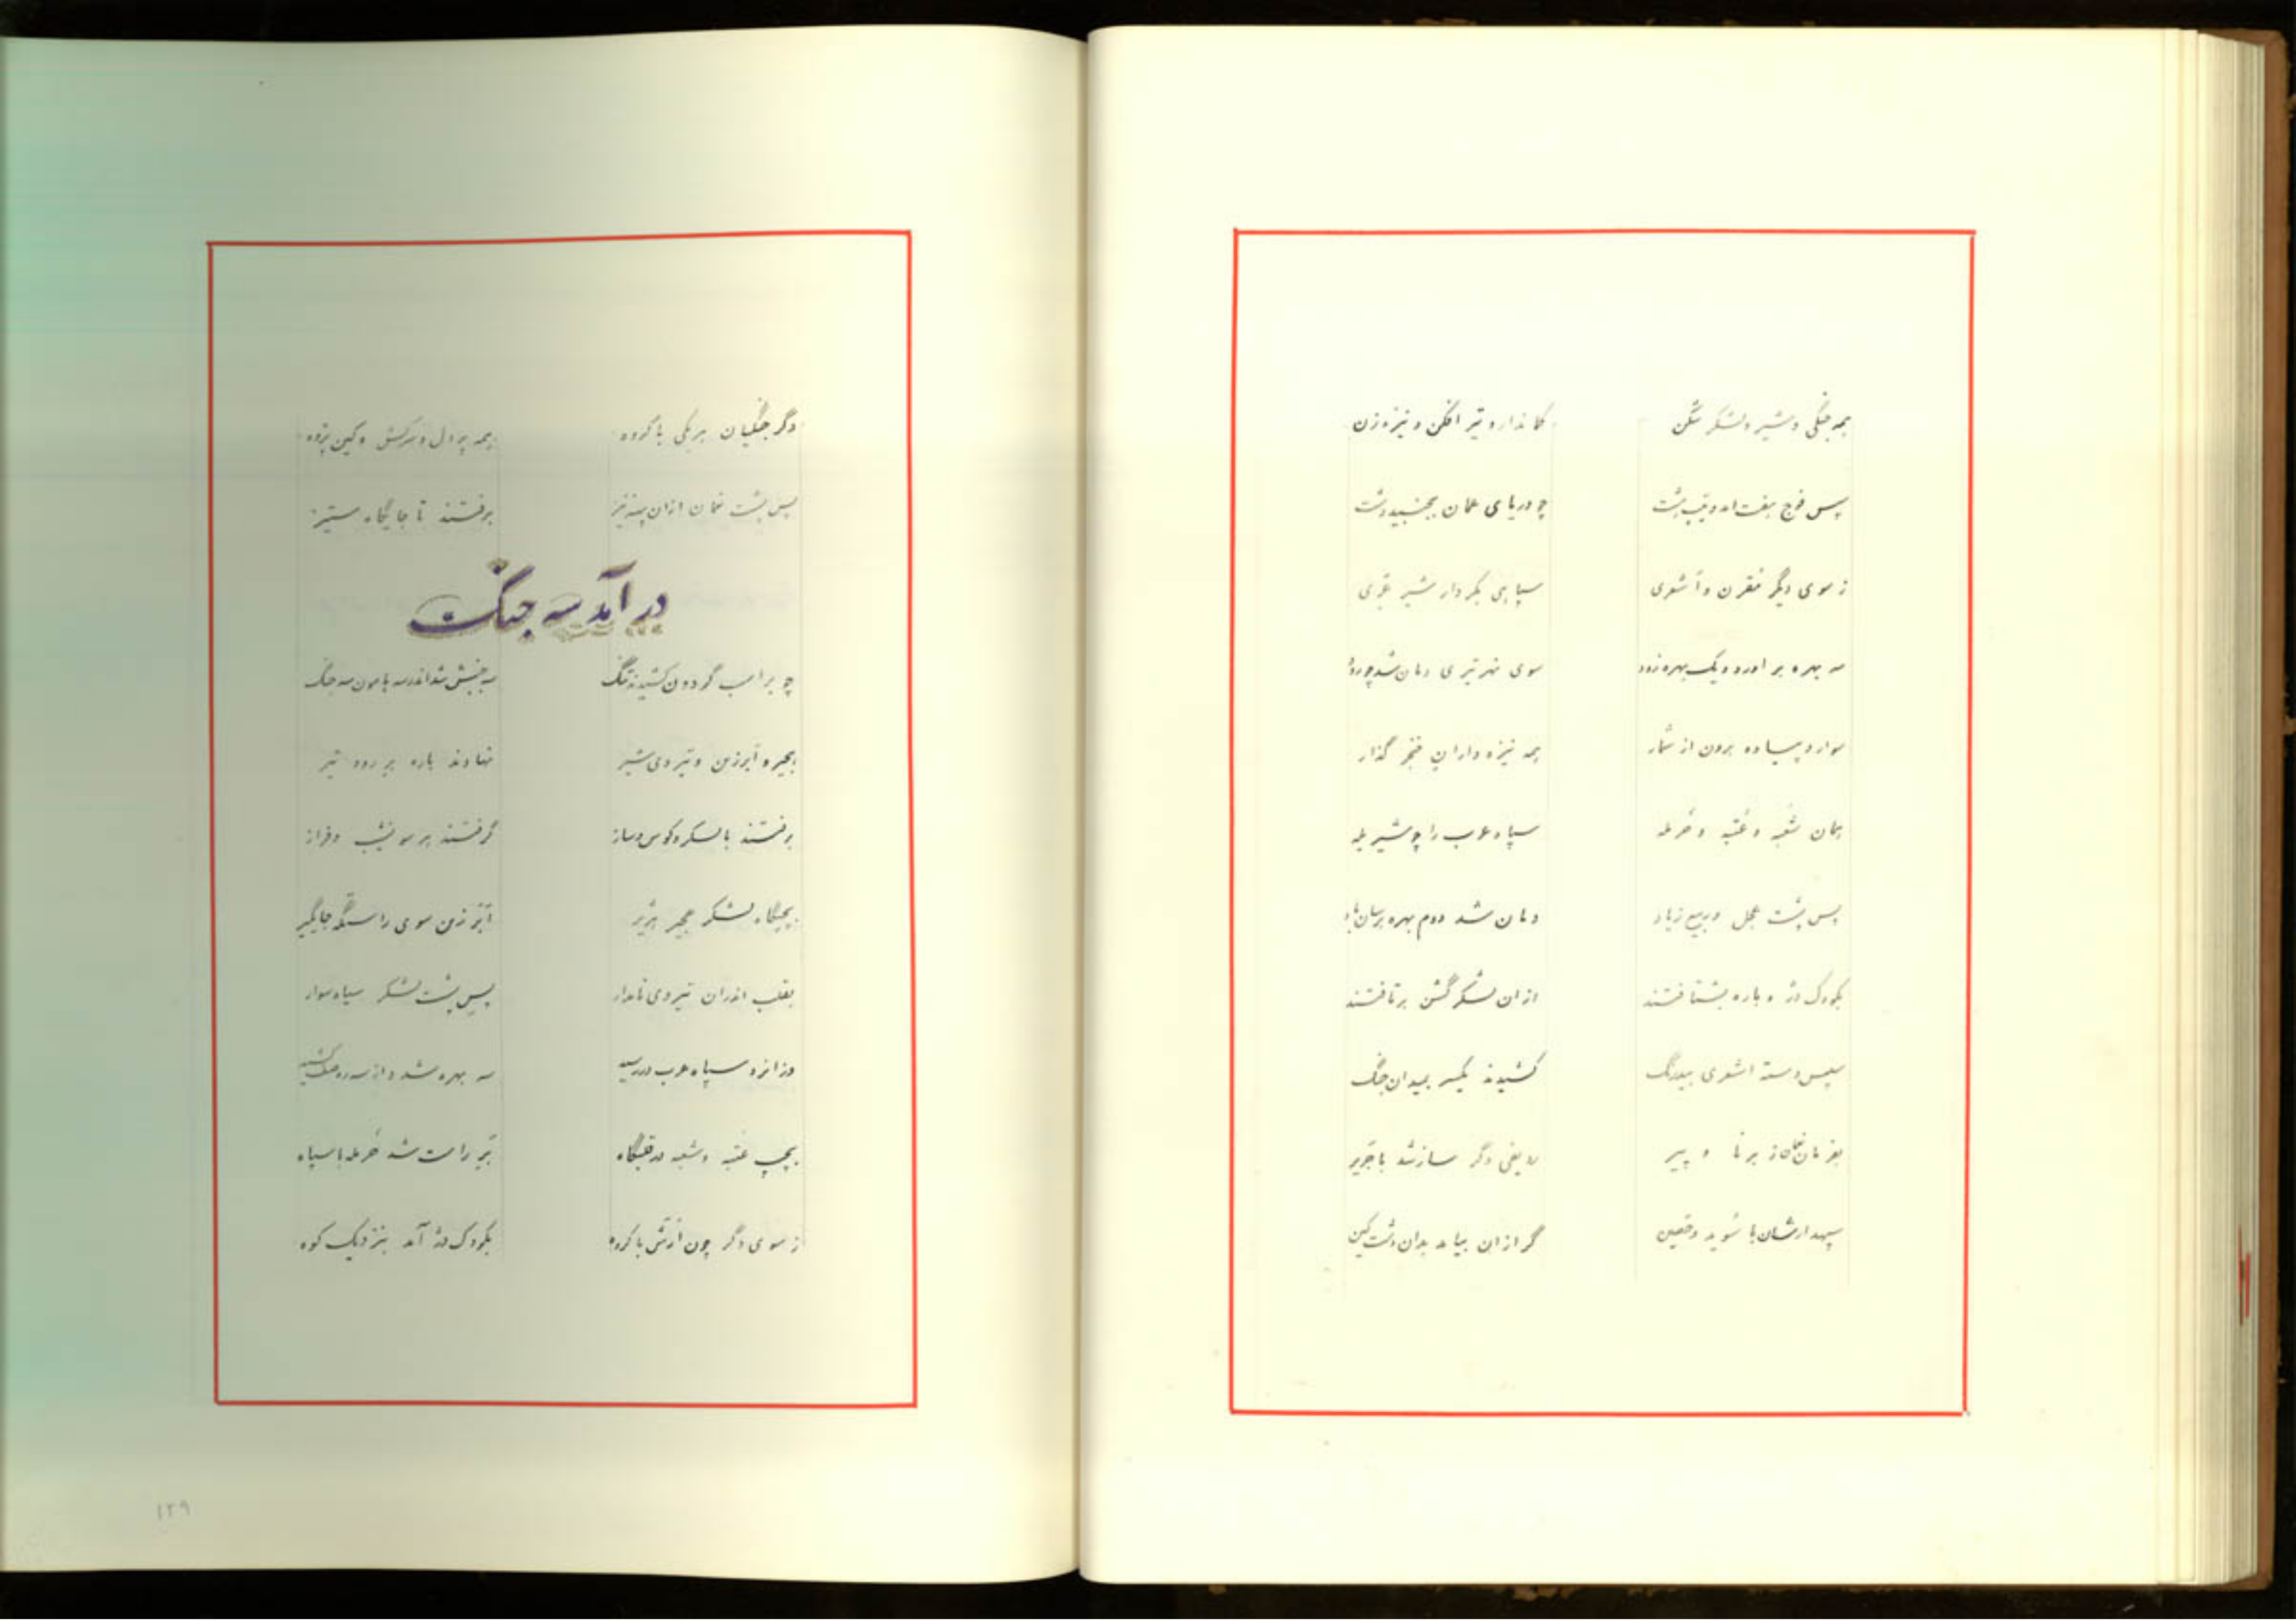 همه جنگی و شیر و لشکر شکن    کماندار و تیر افکن و نیزه زن
پس فوج هفت اندر تیپ هشت    چو دریای عمان بجنبید دشت
ز سوی دیگر مقرن و اشعری    سپاهی بکردار شیر غری
سه بهره بر آورد و یک بهره زود    سوی نهر تیری دمان شد چو رود
سوار و پیاده برون از شمار    همه نیزه داران خنجر گذار
همان شعبه و عتبه و خرمله    سپاه عرب را چو شیر یله
پس پشت عجل و ربیع زیاد    دمان شد دوم بهره برسان باد
بکودک دژ و باره بشتافتند    از ان لشکر گشن برتافتند
سپس دسته اشعری بیدرنگ    کشیدند یکسر بمیدان جنگ
بفرمان نعمان ز برنا و پیر    ردیفی دگر ساز شد با جریر
سپهدارشان با سوید و حصین    گرازان بیامد بدان دشت کین
دگر جنگیان هر یکی با گروه    همه پر دل و سرکش و کین پژوه
پس پشت نعمان ازان پهنه نیز    برفتند تا جایگاه ستیز
در آمد سه جنگ
چو بر اسب گردون کشیدند تنگ    به جنبش شد اندر سه هامون سه جنگ
هجیر و آبرزین و تیردی شیر    نهادند باره بر رود تیر
برفتند با لشکر و کوس و ساز    گرفتند هر سو نشیب و فراز
بچپگاه لشکر هجیر هژیر    آبرزین سوی راستگه جایگیر
بقلب اندران تیردی نامدار    پس پشت لشکر سپاه سوار
وز انرو سپاه عرب در رسید    سه بهره شد و از سه ره صف کشید
بچپ عتبه و شعبه در قلبگاه    بر راست شد خرمله با سپاه
ز سوی دگر چون ارتش با گروه    بکودک دژ آمد بنزدیک کوه
۱۲۹